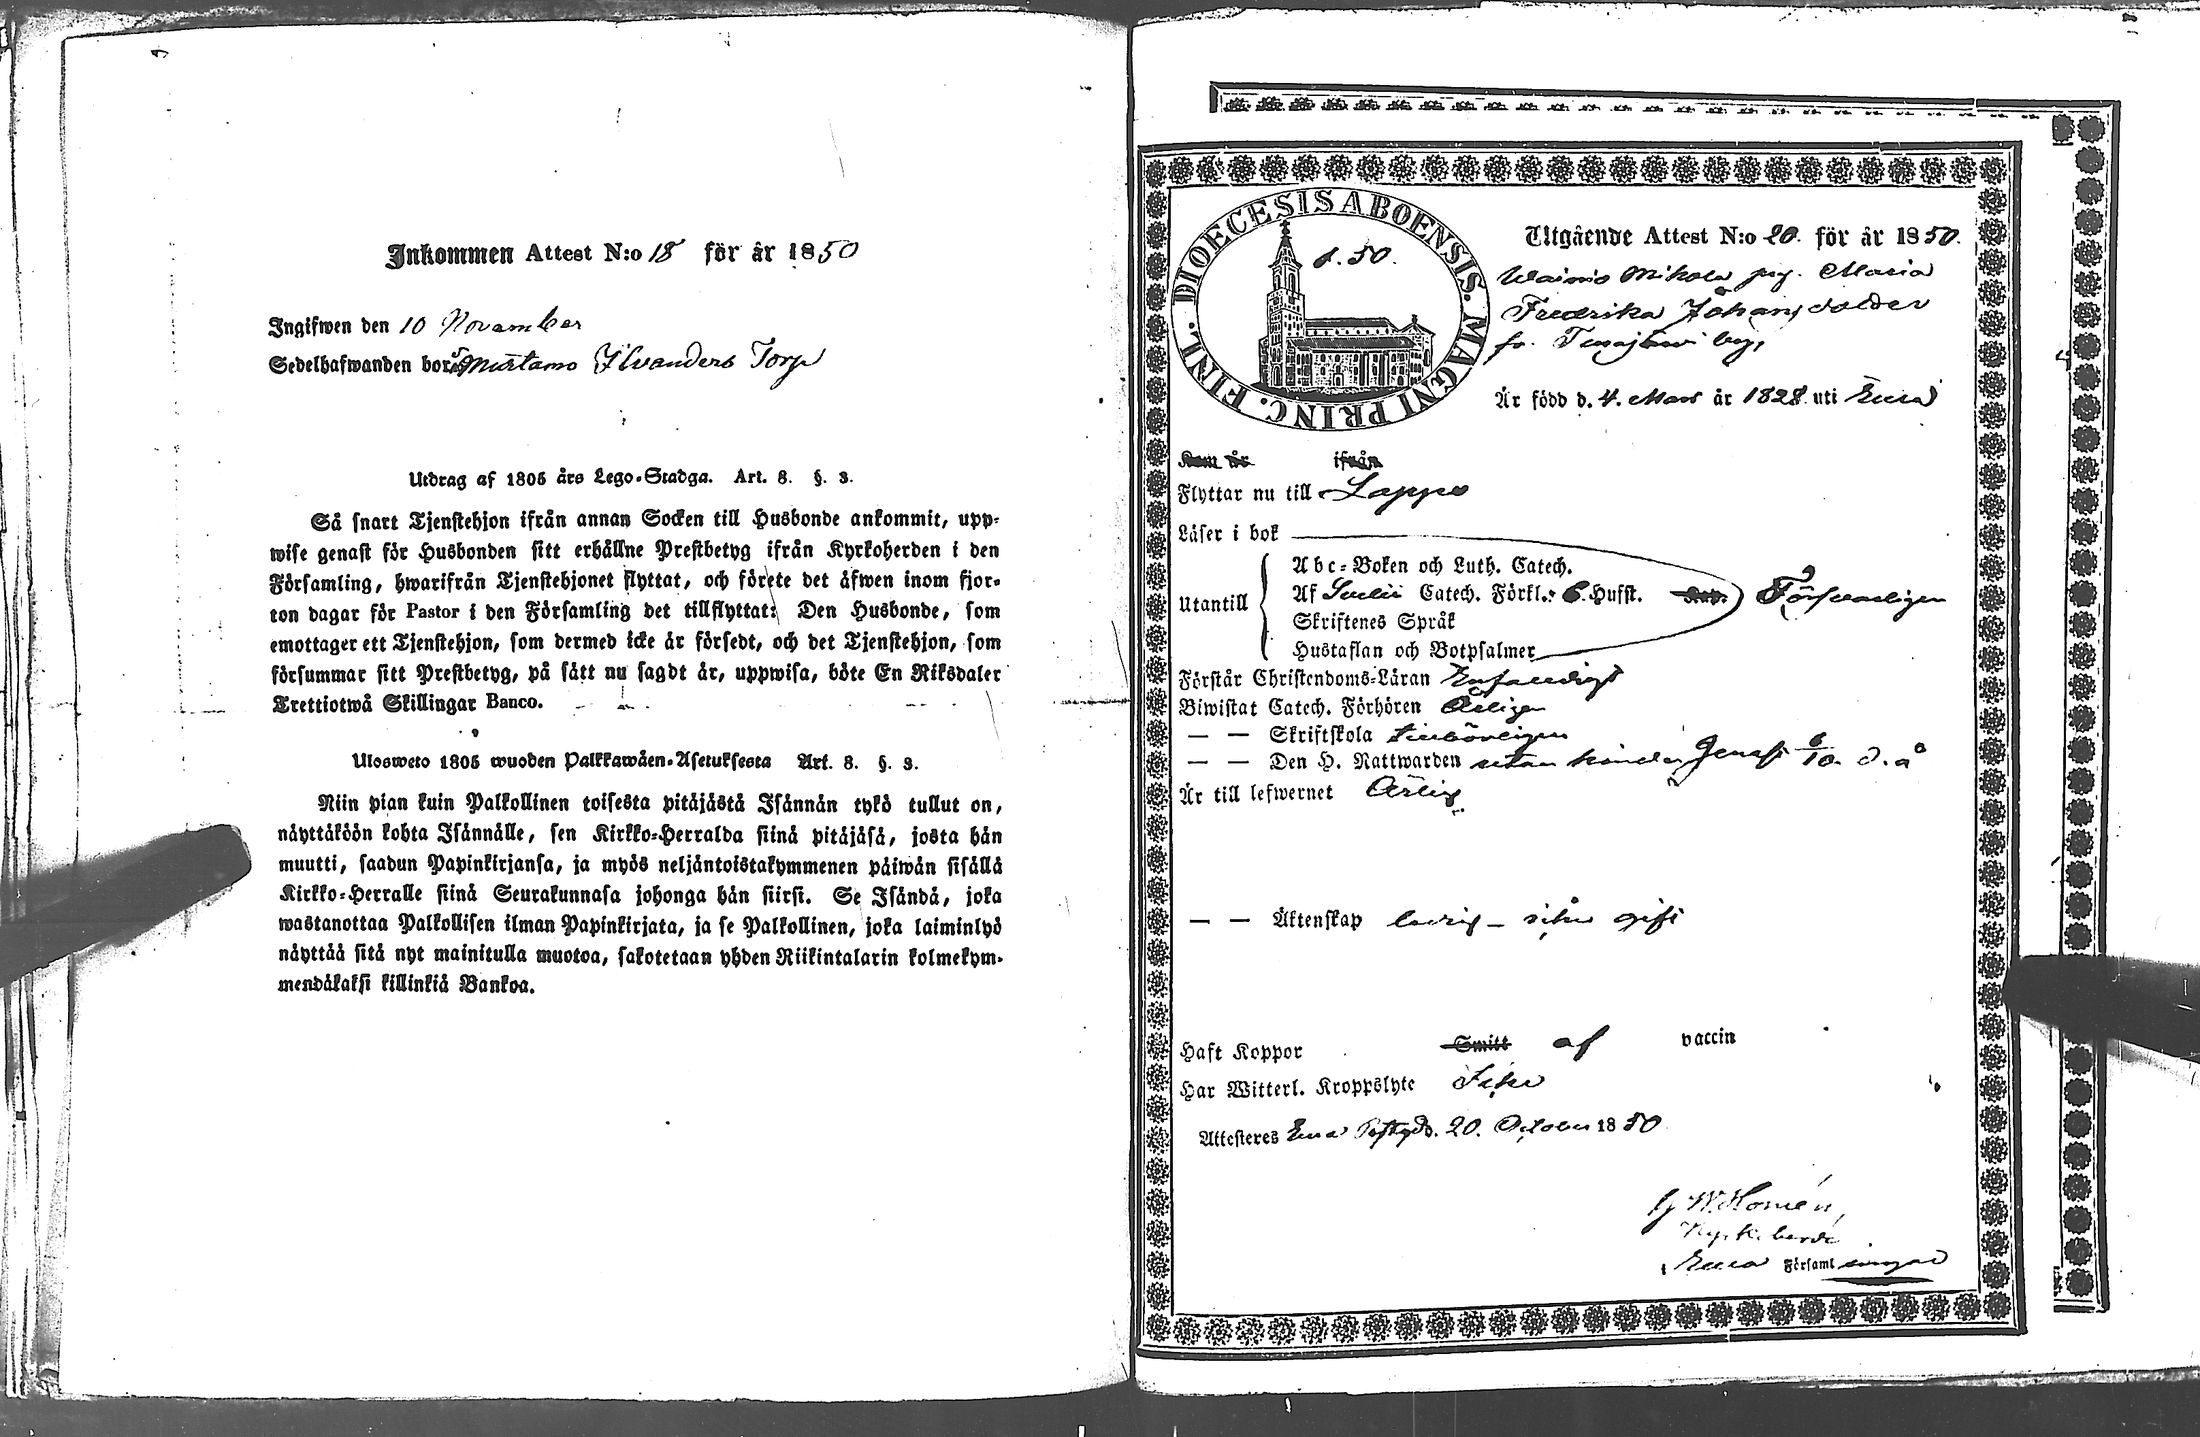 Inkommen Attest N:o 18 för år 1850
Ingifwen den 10 November
Sedelhafwanden bor Torp
Utdrag af 1805 års Lego-Stadga. Art. 8. §. 3.
Så snart Tjenstehjon ifrån annan Socken till Husbonde ankommit, upp-
wise genast för Husbonden sitt erhållne Prestbetyg ifrån Kyrkoherden i den
Församling, hwarifrån Tjenstehjonet flyttat, och förete det äfwen inom fjor-
ton dagar för Pastor i den Församling det tillflyttat: Den Husbonde, som
emottager ett Tjenstehjon, som dermed icke är försedt, och det Tjenstehjon, som
försummar sitt Prestbetyg, på sätt nu sagdt är, uppwisa, böte En Riksdaler
Trettiotwå Skillingar Banco.
Ulosweto 1805 wuoden Palkkawäen-Asetuksesta Art. 8. §. 3.
Niin pian kuin Palkollinen toisesta pitäjästä Isännän tykö tullut on,
näyttäköön kohta Isännälle, sen Kirkko-Herralda siinä pitäjäsä, josta hän
muutti, saadun Papinkirjansa, ja myös neljäntoistakymmenen päiwän sisällä
Kirkko-Herralle siinä Seurakunnasa johonga hän siirsi. Se Isändä, joka
wastanottaa Palkollisen ilman Papinkirjata, ja se Palkollinen, joka laiminlyö
näyttää sitä nyt mainitulla muotoa, sakotetaan yhden Riikintalarin kolmekym-
mendäkaksi killinkiä Bankoa.
DIOECESIS ABOENSIS. MAGNI PRINC. FINL.
d. 50.
Utgående Attest N:o 20. för år 1850.
Wainio Mikola pig. Maria
Fredrika Johansdotter
fr. by,
Är född d. 4. Mars år 1828 uti Eura
Kom år ifrån
Flyttar nu till Lappo
Läser i bok
Utantill
Abc-Boken och Luth. Catech.
Af Catech. Förkl. Husst. Försvarligen
Skriftenes Språk
Hustaflan och Botpsalmer
Förstår Christendoms-Läran Enfaldigt
Biwistat Catech. Förhören Årligen
— — Skriftskola tillbörligen
— — Den H. Nattwarden utan hinder Senast 6/10 d. å
Är till lefwernet Ärlig
— — Äktenskap ledig – icke gift
Haft Koppor Smitt af vaccin
Har Witterl. Kroppslyte Icke
Attesteres Eura Prestgd. 20. October 1850
G W Homén,
Kyrkoherde
Eura Församl ingar